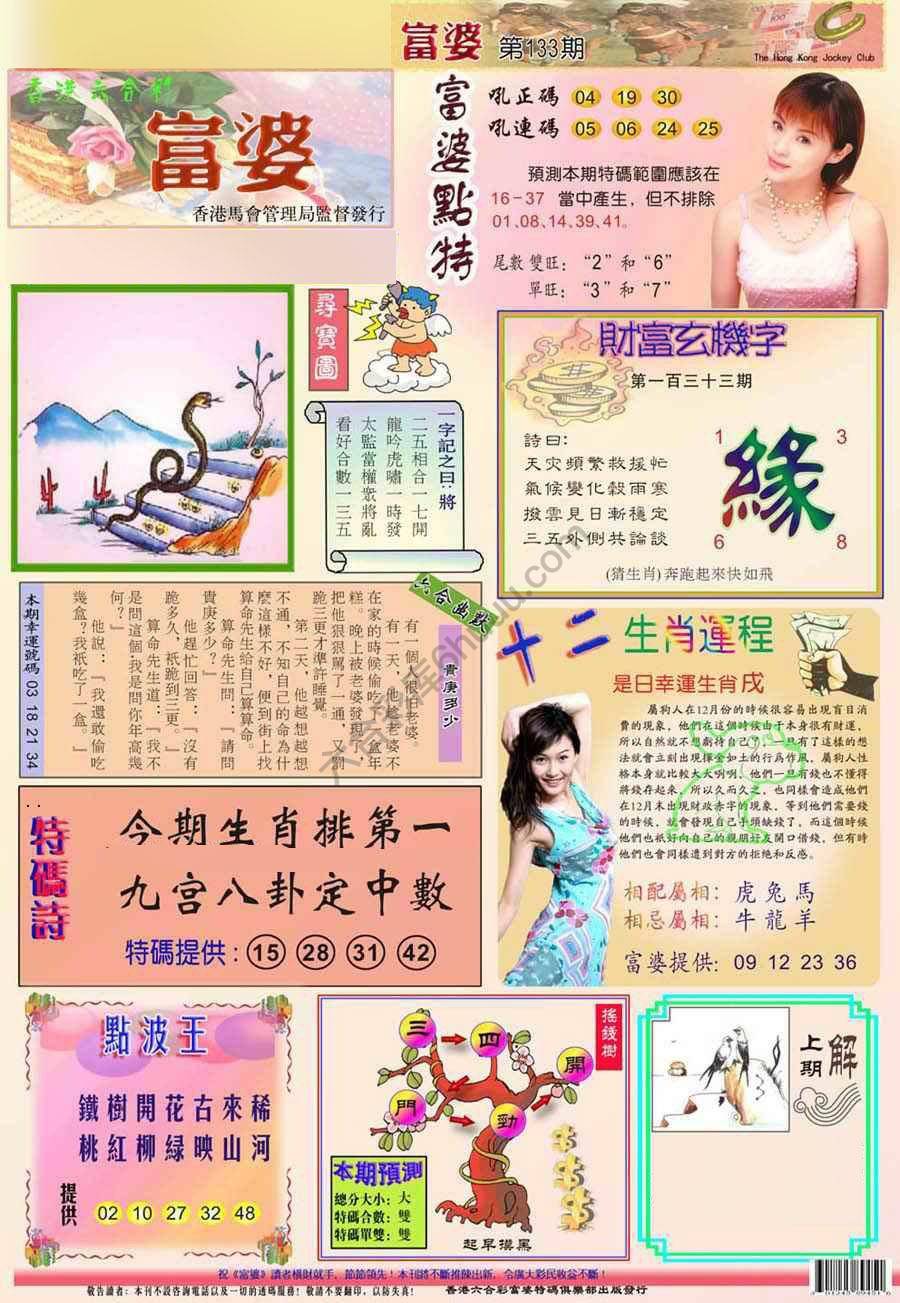 富婆 第133期
The Hong Kong Jockey Club
香港六合彩
富婆
香港馬會管理局監督發行
富婆點特
吼正碼 04 19 30
吼連碼 05 06 24 25
預測本期特碼範圍應該在
16-37 當中產生，但不排除
01、08、14、39、41。
尾數雙旺：“2”和“6”
單旺：“3”和“7”
尋寶圖
一字記之曰：將
二五相合一七開
龍吟虎嘯一時發
太監當權眾將亂
看好合數一三五
財富玄機字
第一百三十三期
詩曰：
天灾頻繁救援忙
氣候變化穀雨寒
撥雲見日漸穩定
三五外側共論談
1 3
緣
6 8
(猜生肖)奔跑起來快如飛
六合幽默
貴庚多少
有一個人很怕老婆。
有一天，他趁老婆不
在家的時候偷吃了一盒年
糕。晚上被老婆發現，
把他狠狠罵了一通，又罰
跪三更才準許睡覺。
第二天，他越想越想
不通，不知自己的命為什
麽這樣不好，便到街上找
算命先生給自己算算命。
算命先生問：『請問
貴庚多少？』
他趕忙回答：『沒有
跪多久，祇跪到三更。』
算命先生道：『我不
是問這個，我是問你年高幾
何？』
他說：『我還敢偷吃
幾盒？我祇吃了一盒。』
本期幸運號碼 03 18 21 34
十二生肖運程
是日幸運生肖戌
屬狗人在12月份的時候很容易出現盲目消
費的現象，他們在這個時候由于本身很有財運，
所以自然就不想虧待自己了，一旦有了這樣的想
法就會立刻出現揮金如土的行為作風，屬狗人性
格本身就比較大大咧咧，他們一旦有錢也不懂得
將錢存起來，所以久而久之，也同樣會造成他們
在12月末出現財政赤字的現象，等到他們需要錢
的時候，就會發現自己手頭缺錢了。而這個時候
他們也祇好向自己的親朋好友開口借錢，但有時
他們也會同樣遭到對方的拒絕和反感。
相配屬相：虎兔馬
相忌屬相：牛龍羊
富婆提供：09 12 23 36
特碼詩
今期生肖排第一
九宮八卦定中數
特碼提供：15 28 31 42
點波王
鐵樹開花古來稀
桃紅柳綠映山河
提供 02 10 27 32 48
搖錢樹
三 四 開
門 勁
本期預測
總分大小：大
特碼合數：雙
特碼單雙：雙
起早摸黑
上期解
祝《富婆》讀者橫財就手，節節領先！本刊將不斷推陳出新，令廣大彩民收益不斷！
敬告讀者：本刊不設咨詢電話以及一切的透碼服務！敬請不要翻印，以防失真！
香港六合彩富婆特碼俱樂部出版發行